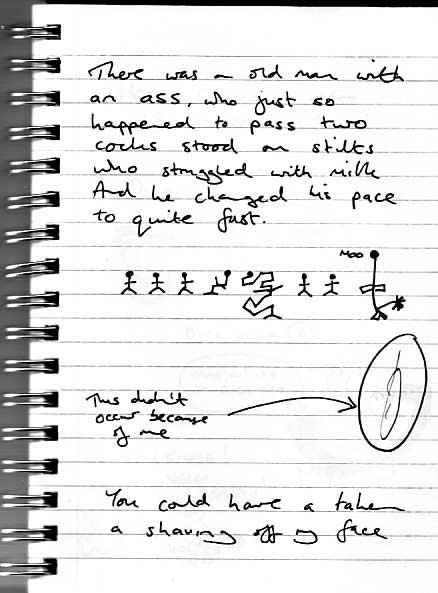 There was an old man with
an ass, who just so
happened to pass two
cocks stood on stilts
who struggled with milk
And he changed his pace
to quite fast.
MOO
This didn't
occur because
of me
You could have a taken
a shaving off my face